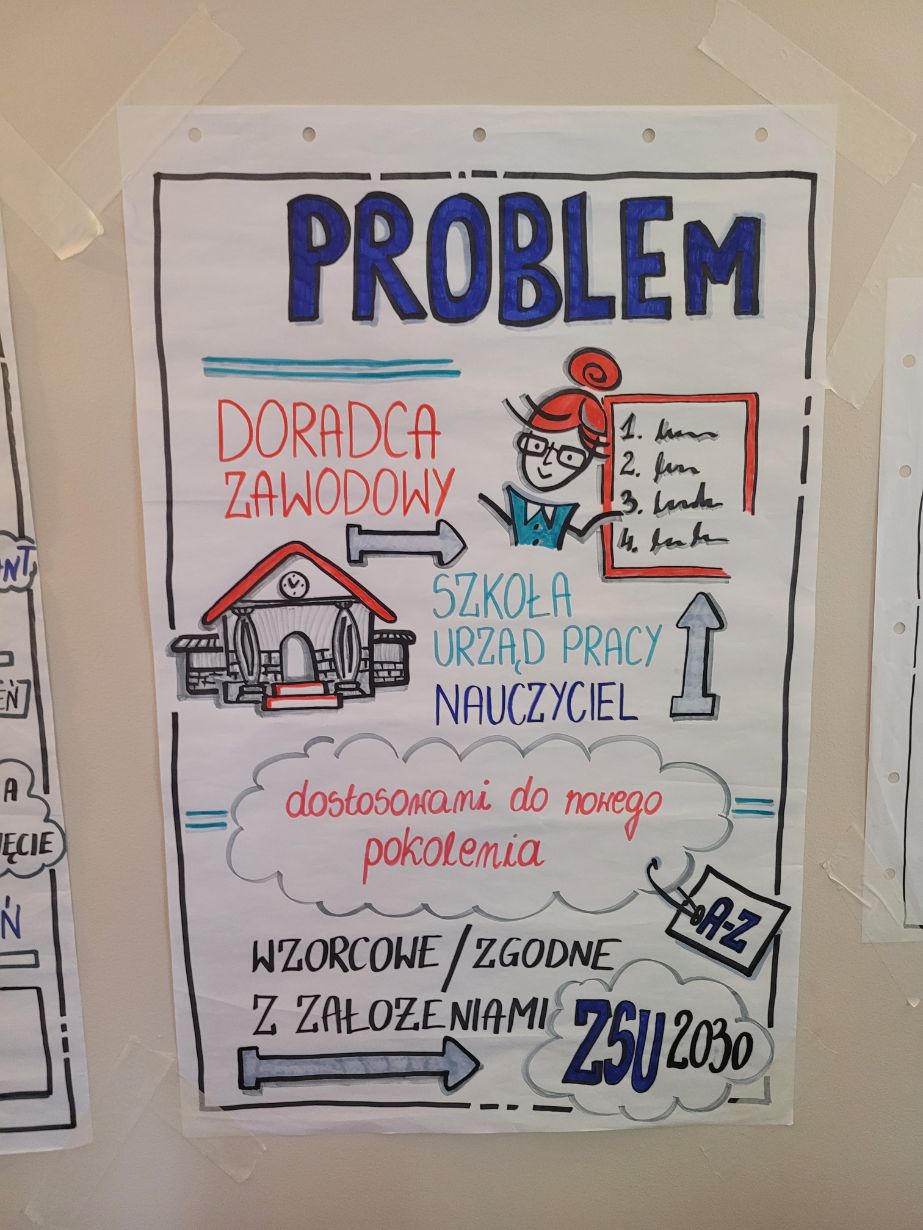 PROBLEM
DORADCA
ZAWODOWY
1.
2.
3.
4.
SZKOŁA
URZĄD PRACY
NAUCZYCIEL
dostosowani do nowego
pokolenia
A-Z
WZORCOWE/ZGODNE
Z ZAŁOŻENIAMI
ZSU 2030
NT
EŃ
A
IĘCIE
Ń